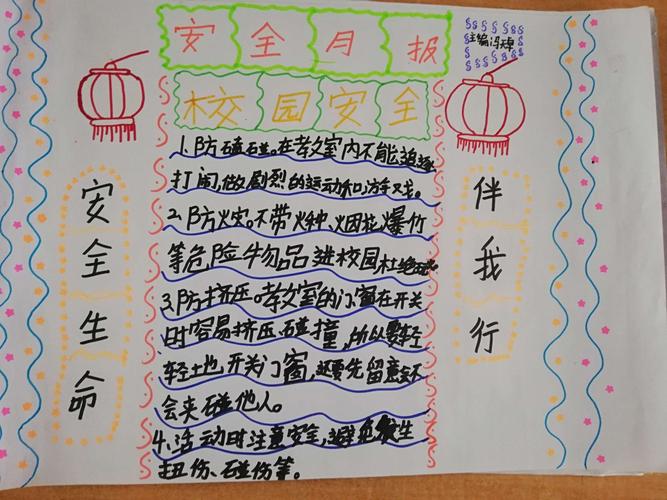 安全月报
主编:冯
校园安全
安全生命
伴我行
1.防磕碰。在教室内不能追逐
打闹,做剧烈的运动和游戏。
2.防火灾。不带火种、烟花爆竹
等危险物品进校园杜绝
3.防挤压。教室的门窗在开关
时容易挤压碰撞,所以要轻
轻土也开关门窗,还要先留意会不
会夹碰他人。
4.活动时注意安全,避免发生
扭伤、碰伤等。